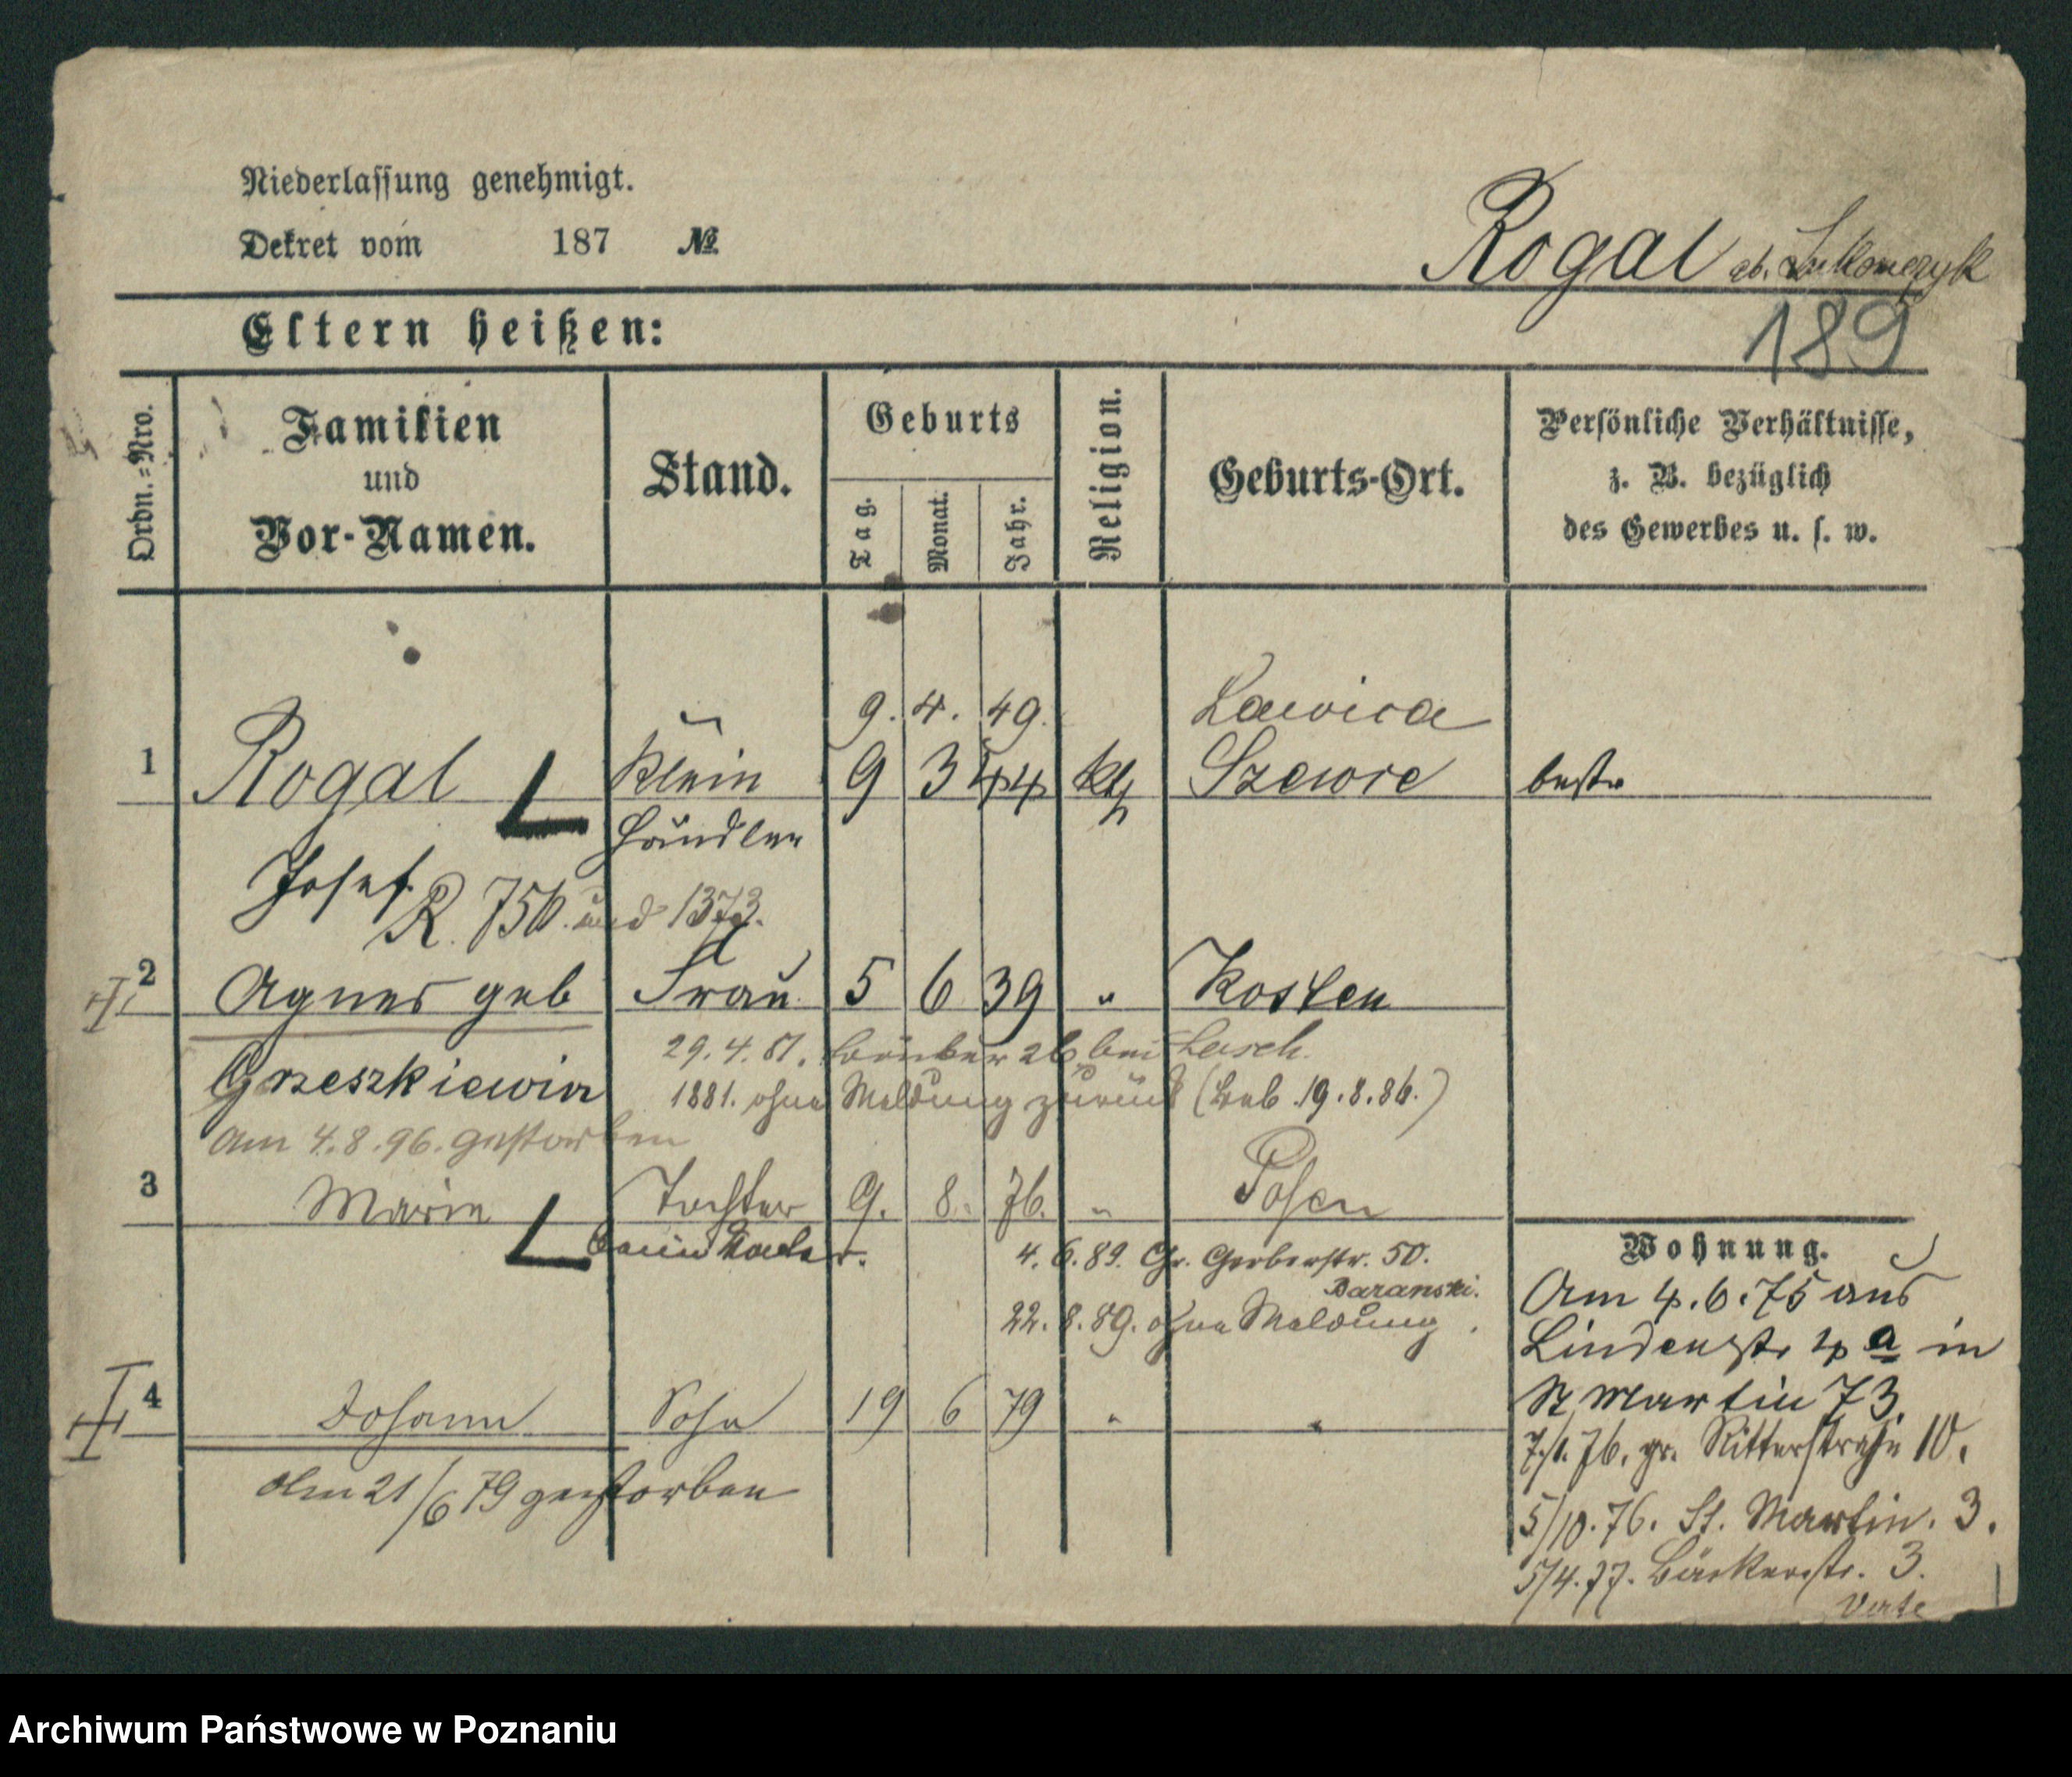 Niederlassung genehmigt.
Dekret vom 187 №
Rogal
189
Eltern heißen:
Ordn.=Nro.
Familien
und
Vor-Namen.
Stand.
Geburts
Tag.
Monat.
Jahr.
Religion.
Geburts-Ort.
Persönliche Verhältnisse,
z. B. bezüglich
des Gewerbes u. s. w.
9. 4. 49. Lawica
1 Rogal Klein 9 3 44 kth Szewce
Händler
Josef
R. 756. und 1373.
2 Agnes geb Frau 5 6 39 " Kosten
29.4.81. bei Lasch.
Grzeszkiewicz 1881. ohne Meldung zurück (19.8.86.)
Am 4.8.96. gestorben
3 Marie Tochter 9. 8. 76. " Posen
4.6.89. Gr. Gerberstr. 50.
Baranski.
22.8.89. ohne Meldung.
4 Johann Sohn 19 6 79 " "
Am 21/6 79 gestorben
Wohnung.
Am 4.6.75 aus
Lindenstr 4 a in
St Martin 73.
76. gr. Ritterstraße 10.
5/10.76. St. Martin. 3.
5/4.77. Bäckerstr. 3.
Verte
Archiwum Państwowe w Poznaniu